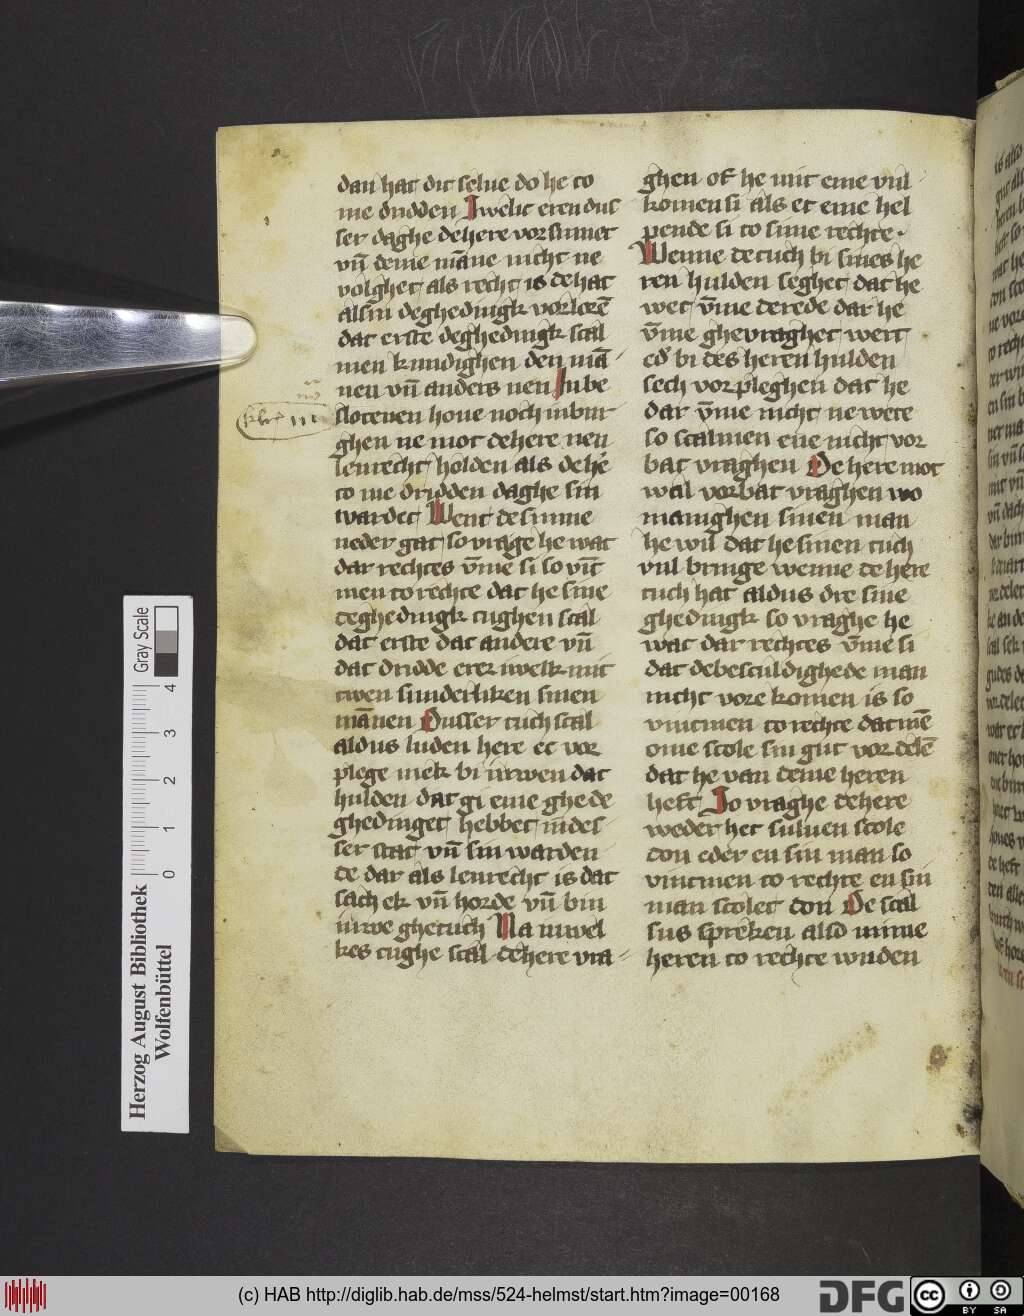 dan hat dit selue do he to
me dridden Iwelic eren dus
ser daghe de here vor sumet
vn̄ deme māne nicht ne
volghet als recht is de hat
alsin deghedingk vorlorē
dat erste deghedingk scal
men kundighen den mā
nen vn̄ anders nen In be
slotenen houe noch in bur
ghen ne mot de here nen
lenrecht holden als de he
to me dridden daghe sin
wardet Went de sunne
neder gat so vrage he wat
dar rechtes v̄me si so vīt
men to rechte dat he sine
deghedingk tughen scal
dat erste dat andere vn̄
dat dridde erer iwelk mit
twen sunderliken sinen
mānen Dusser tuch scal
aldus luden here ec vor
plege mek bi iuwen dat
hulden dat gi eine ghede
ghedinget hebbet in des
ser stat vn̄ sin warden
de dar als lenrecht is dat
sach ek vn̄ horde vn̄ bin
iuwe ghetuch Na iuwel
kes tughe scal de here vra
ghen oft he mit eme vul
komen si als et eme hel
pende si to sime rechte
Wenne de tuch bi sines he
ren hulden seghet dat he
wet v̄me de rede dar he
v̄me ghevraghet wert
ed' bi des heren hulden
sech vorpleghen dat he
dar v̄me nicht ne wete
so scal men ene nicht vor
bat vraghen De here mot
wal vorbat vraghen wo
manighen sinen man
he wil dat he sinen tuch
vul bringe wenne de here
tuch hat aldus dre sine
ghedingk so vraghe he
wat dar rechtes v̄me si
dat de besculdighede man
nicht vore komen is so
vintmen to rechte dat mē
ome scole sin gut vordelē
dat he van deme heren
heft So vraghe de here
weder het suluen scole
don eder en sin man so
vintmen to rechte en sin
man scolet don De scal
sus spreken also minne
heren to rechte wnden
Gray Scale
4
3
2
1
0
Herzog August Bibliothek
Wolfenbüttel
(c) HAB http://diglib.hab.de/mss/524-helmst/start.htm?image=00168
DFG
cc
BY SA